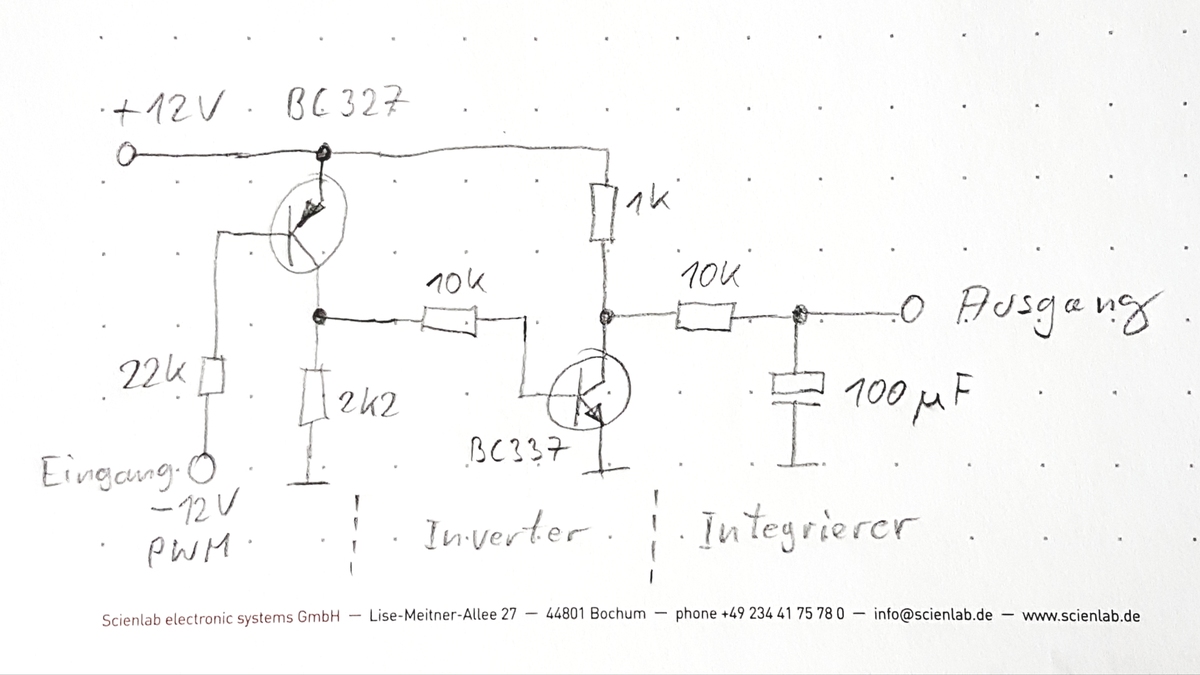 +12V BC327
1K
10K
10K
Ausgang
22K
2K2
100µF
BC337
Eingang
-12V
PWM
Inverter
Integrierer
Scienlab electronic systems GmbH — Lise-Meitner-Allee 27 — 44801 Bochum — phone +49 234 41 75 78 0 — info@scienlab.de — www.scienlab.de